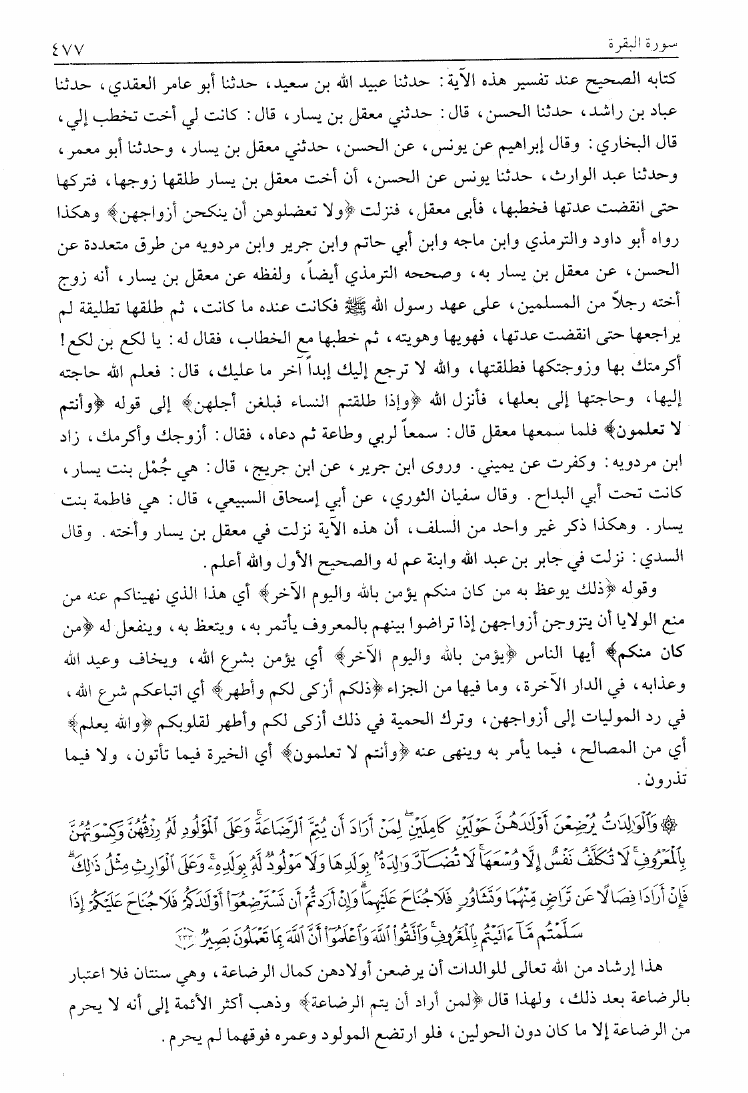 سورة البقرة ٤٧٧
كتابه الصحيح عند تفسير هذه الآية: حدثنا عبيد الله بن سعيد، حدثنا أبو عامر العقدي، حدثنا
عباد بن راشد، حدثنا الحسن، قال: حدثني معقل بن يسار، قال: كانت لي أخت تخطب إلي،
قال البخاري: وقال إبراهيم عن يونس، عن الحسن، حدثني معقل بن يسار، وحدثنا أبو معمر،
وحدثنا عبد الوارث، حدثنا يونس عن الحسن، أن أخت معقل بن يسار طلقها زوجها، فتركها
حتى انقضت عدتها فخطبها، فأبى معقل، فنزلت ﴿ولا تعضلوهن أن ينكحن أزواجهن﴾ وهكذا
رواه أبو داود والترمذي وابن ماجه وابن أبي حاتم وابن جرير وابن مردويه من طرق متعددة عن
الحسن، عن معقل بن يسار به، وصححه الترمذي أيضاً، ولفظه عن معقل بن يسار، أنه زوج
أخته رجلاً من المسلمين، على عهد رسول الله ﷺ فكانت عنده ما كانت، ثم طلقها تطليقة لم
يراجعها حتى انقضت عدتها، فهويها وهويته، ثم خطبها مع الخطاب، فقال له: يا لكع بن لكع!
أكرمتك بها وزوجتكها فطلقتها، والله لا ترجع إليك إبداً آخر ما عليك، قال: فعلم الله حاجته
إليها، وحاجتها إلى بعلها، فأنزل الله ﴿وإذا طلقتم النساء فبلغن أجلهن﴾ إلى قوله ﴿وأنتم
لا تعلمون﴾ فلما سمعها معقل قال: سمعاً لربي وطاعة ثم دعاه، فقال: أزوجك وأكرمك، زاد
ابن مردويه: وكفرت عن يميني. وروى ابن جرير، عن ابن جريج، قال: هي جُمْل بنت يسار،
كانت تحت أبي البداح. وقال سفيان الثوري، عن أبي إسحاق السبيعي، قال: هي فاطمة بنت
يسار. وهكذا ذكر غير واحد من السلف، أن هذه الآية نزلت في معقل بن يسار وأخته. وقال
السدي: نزلت في جابر بن عبد الله وابنة عم له والصحيح الأول والله أعلم.
وقوله ﴿ذلك يوعظ به من كان منكم يؤمن بالله واليوم الآخر﴾ أي هذا الذي نهيناكم عنه من
منع الولايا أن يتزوجن أزواجهن إذا تراضوا بينهم بالمعروف يأتمر به، ويتعظ به، وينفعل له ﴿من
كان منكم﴾ أيها الناس ﴿يؤمن بالله واليوم الآخر﴾ أي يؤمن بشرع الله، ويخاف وعيد الله
وعذابه، في الدار الآخرة، وما فيها من الجزاء ﴿ذلكم أزكى لكم وأطهر﴾ أي اتباعكم شرع الله،
في رد الموليات إلى أزواجهن، وترك الحمية في ذلك أزكى لكم وأطهر لقلوبكم ﴿والله يعلم﴾
أي من المصالح، فيما يأمر به وينهى عنه ﴿وأنتم لا تعلمون﴾ أي الخيرة فيما تأتون، ولا فيما
تذرون.
۞ وَٱلْوَٰلِدَٰتُ يُرْضِعْنَ أَوْلَٰدَهُنَّ حَوْلَيْنِ كَامِلَيْنِ ۖ لِمَنْ أَرَادَ أَن يُتِمَّ ٱلرَّضَاعَةَ ۚ وَعَلَى ٱلْمَوْلُودِ لَهُۥ رِزْقُهُنَّ وَكِسْوَتُهُنَّ
بِٱلْمَعْرُوفِ ۚ لَا تُكَلَّفُ نَفْسٌ إِلَّا وُسْعَهَا ۚ لَا تُضَآرَّ وَٰلِدَةٌۢ بِوَلَدِهَا وَلَا مَوْلُودٌ لَّهُۥ بِوَلَدِهِۦ ۚ وَعَلَى ٱلْوَارِثِ مِثْلُ ذَٰلِكَ ۗ
فَإِنْ أَرَادَا فِصَالًا عَن تَرَاضٍ مِّنْهُمَا وَتَشَاوُرٍ فَلَا جُنَاحَ عَلَيْهِمَا ۗ وَإِنْ أَرَدتُّمْ أَن تَسْتَرْضِعُوٓا۟ أَوْلَٰدَكُمْ فَلَا جُنَاحَ عَلَيْكُمْ إِذَا
سَلَّمْتُم مَّآ ءَاتَيْتُم بِٱلْمَعْرُوفِ ۗ وَٱتَّقُوا۟ ٱللَّهَ وَٱعْلَمُوٓا۟ أَنَّ ٱللَّهَ بِمَا تَعْمَلُونَ بَصِيرٌ ٢٣٣
هذا إرشاد من الله تعالى للوالدات أن يرضعن أولادهن كمال الرضاعة، وهي سنتان فلا اعتبار
بالرضاعة بعد ذلك، ولهذا قال ﴿لمن أراد أن يتم الرضاعة﴾ وذهب أكثر الأئمة إلى أنه لا يحرم
من الرضاعة إلا ما كان دون الحولين، فلو ارتضع المولود وعمره فوقهما لم يحرم.